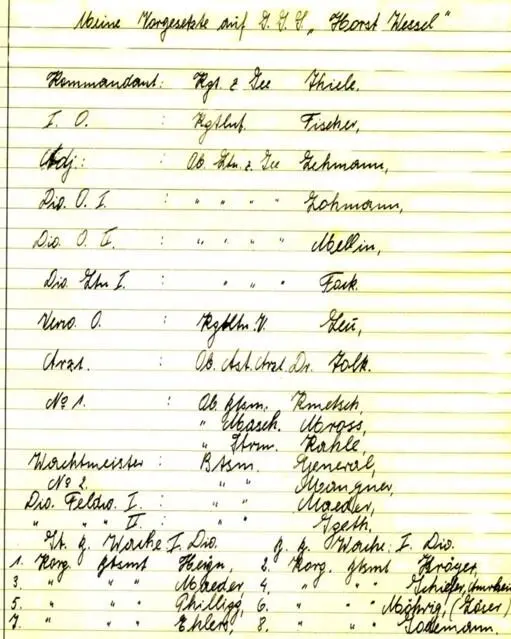 Meine Vorgesetzte auf S.S.S. „Horst Wessel"
Kommandant: Kpt. z See Thiele.
I. O. : Kptlnt. Fischer,
Adj: : Ob. Ltn. z. See Lehmann,
Div. O. I : " " " " Lohmann,
Div. O. II : " " " " Mellin,
Div. Ltn I. : " " " Fack.
Verw. O. : Kptltn. V. Leu,
Arzt. : Ob. Ast. Arzt. Dr. Falk.
No 1. : Ob. Btsm. Kmetsch,
" Masch. Mross,
" Strm. Kahle,
Wachtmeister : Btsm. General,
No 2. " " Mangner,
Div. Feldw. I. : " " Maeder,
" " II : " "
St. g. Wache I. Div. g. g. Wache: I. Div
1. Korp. Btsmt 2. Korp. Btsmt Kröger,
3. " " Maeder, 4. " "
5. " " 6. " "
7. " " Ehlers, 8. " "